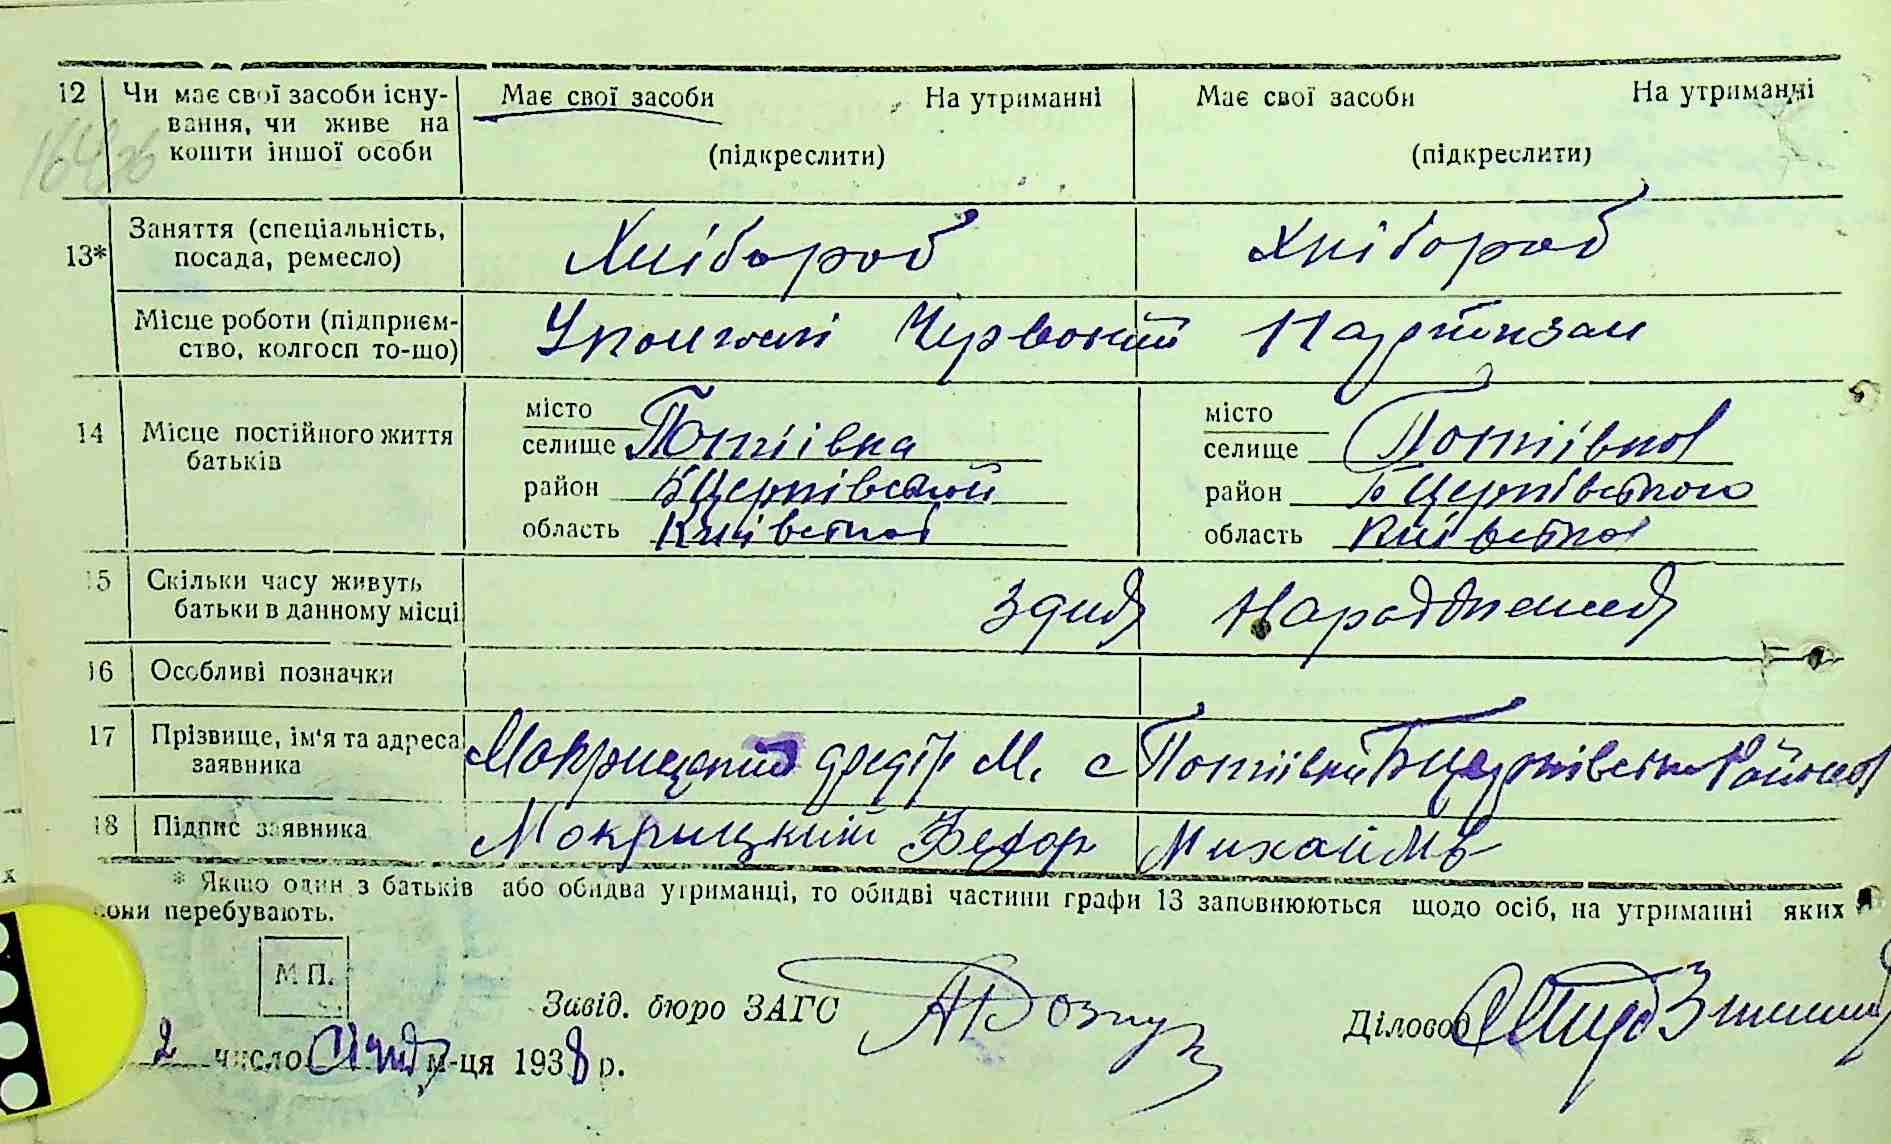 12 Чи має свої засоби існу- Має свої засоби На утриманні Має свої засоби На утриманні
вання, чи живе на
кошти іншої особи (підкреслити) (підкреслити)
13* Заняття (спеціальність, Хлібороб Хлібороб
посада, ремесло)
Місце роботи (підприєм- Червоний Партизан
ство, колгосп то-що)
14 Місце постійного життя місто місто
батьків селище Потіївка селище Потіївка
район Бцерківський район Бцерківського
область Київської область Київської
15 Скільки часу живуть З дня Народження
батьки в данному місці
16 Особливі позначки
17 Прізвище, ім'я та адреса Мокрицький Федір М. с Потіївки Бцерківськ Району
заявника
18 Підпис заявника Мокрицкий Федор Михайлов
* Якщо один з батьків або обидва утриманці, то обидві частини графи 13 заповнюються щодо осіб, на утриманні яких
вони перебувають.
М П.
Завід. бюро ЗАГС
Діловод
2 число Січня м-ця 1938 р.